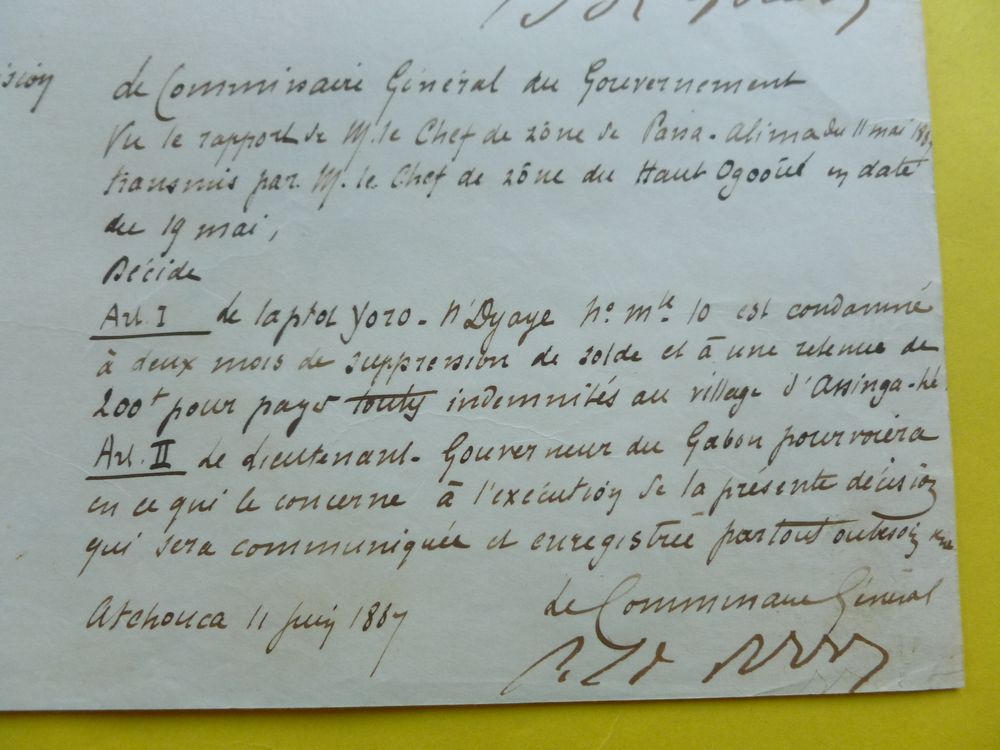 ision
Le Commissaire Général du Gouvernement
Vu le rapport de M. le Chef de zône de Passa-Alima du 11 mai 1887
transmis par M. le Chef de zône du Haut Ogooué en date
du 19 mai,
Décide
Art. I Le laptot Yoro-N'Dyaye No. Mle 10 est condamné
à deux mois de suppression de solde et à une retenue de
200f pour payer toutes indemnités au village d'Assinga-
Art. II Le Lieutenant-Gouverneur du Gabon pourvoiera
en ce qui le concerne à l'exécution de la présente décision
qui sera communiquée et enregistrée partout où besoin sera
Atchouca 11 juin 1887
Le Commissaire Général